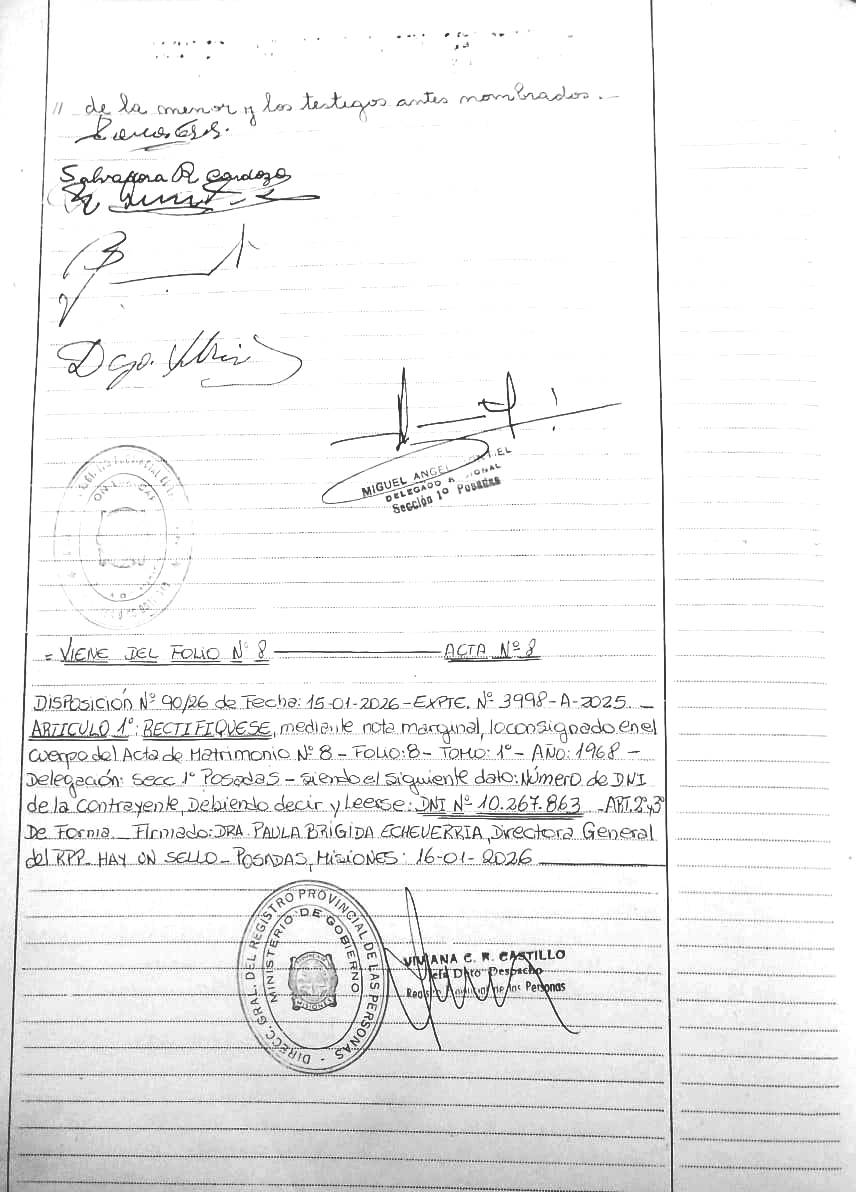 // de la menor y los testigos antes nombrados.-
Salvadora R Cardozo
MIGUEL ANGEL
DELEGADO
Sección 1º Posadas
= VIENE DEL FOLIO Nº 8 ——— ACTA Nº 8
DISPOSICIÓN Nº 90/26 de Fecha: 15-01-2026 - EXPTE. Nº 3998-A-2025. _
ARTICULO 1º: RECTIFIQUESE, mediante nota marginal, lo consignado en el
cuerpo del Acta de Matrimonio Nº 8 - FOLIO: 8 - TOMO: 1º - AÑO: 1968 -
Delegación: secc 1º POSADAS - siendo el siguiente dato: Número de DNI
de la contrayente, Debiendo decir y Leerse: DNI Nº 10.267.863 _ ART. 2º y 3º
De Forma _ Firmado: DRA. PAULA BRIGIDA ECHEVERRIA, Directora General
del RPP_ HAY UN SELLO_ POSADAS, MISIONES: 16-01-2026
DIRECC. GRAL. DEL REGISTRO PROVINCIAL DE LAS PERSONAS -
MINISTERIO DE GOBIERNO
MISIONES
VIVIANA C. R. CASTILLO
Jefa Dpto Despacho
de las Personas